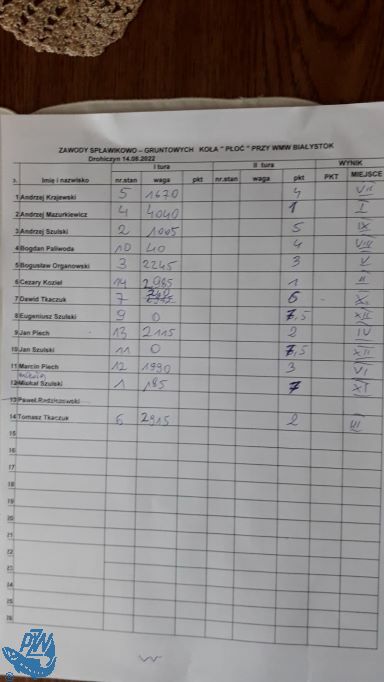 ZAWODY SPŁAWIKOWO – GRUNTOWYCH KOŁA " PŁOĆ " PRZY WMW BIAŁYSTOK
Drohiczyn 14.08.2022
I tura II tura WYNIK
Imię i nazwisko nr.stan waga pkt nr.stan waga pkt PKT MIEJSCE
1 Andrzej Krajewski 5 1670 4 VII
2 Andrzej Mazurkiewicz 4 4040 1 I
3 Andrzej Szulski 2 5 IX
4 Bogdan Paliwoda 10 40 4 VIII
5 Bogusław Organowski 3 2245 3 V
6 Cezary Kozieł 14 2985 1 II
7 Dawid Tkaczuk 7 6 X
8 Eugeniusz Szulski 9 0 7,5 XII
9 Jan Piech 13 2115 2 IV
10 Jan Szulski 11 0 7,5 XII
11 Marcin Piech 12 1990 3 VI
12 Szulski 1 185 7 XI
13 Paweł
14 Tomasz Tkaczuk 6 2915 2 III
15
16
17
18
19
20
21
22
23
24
25
26
PZW